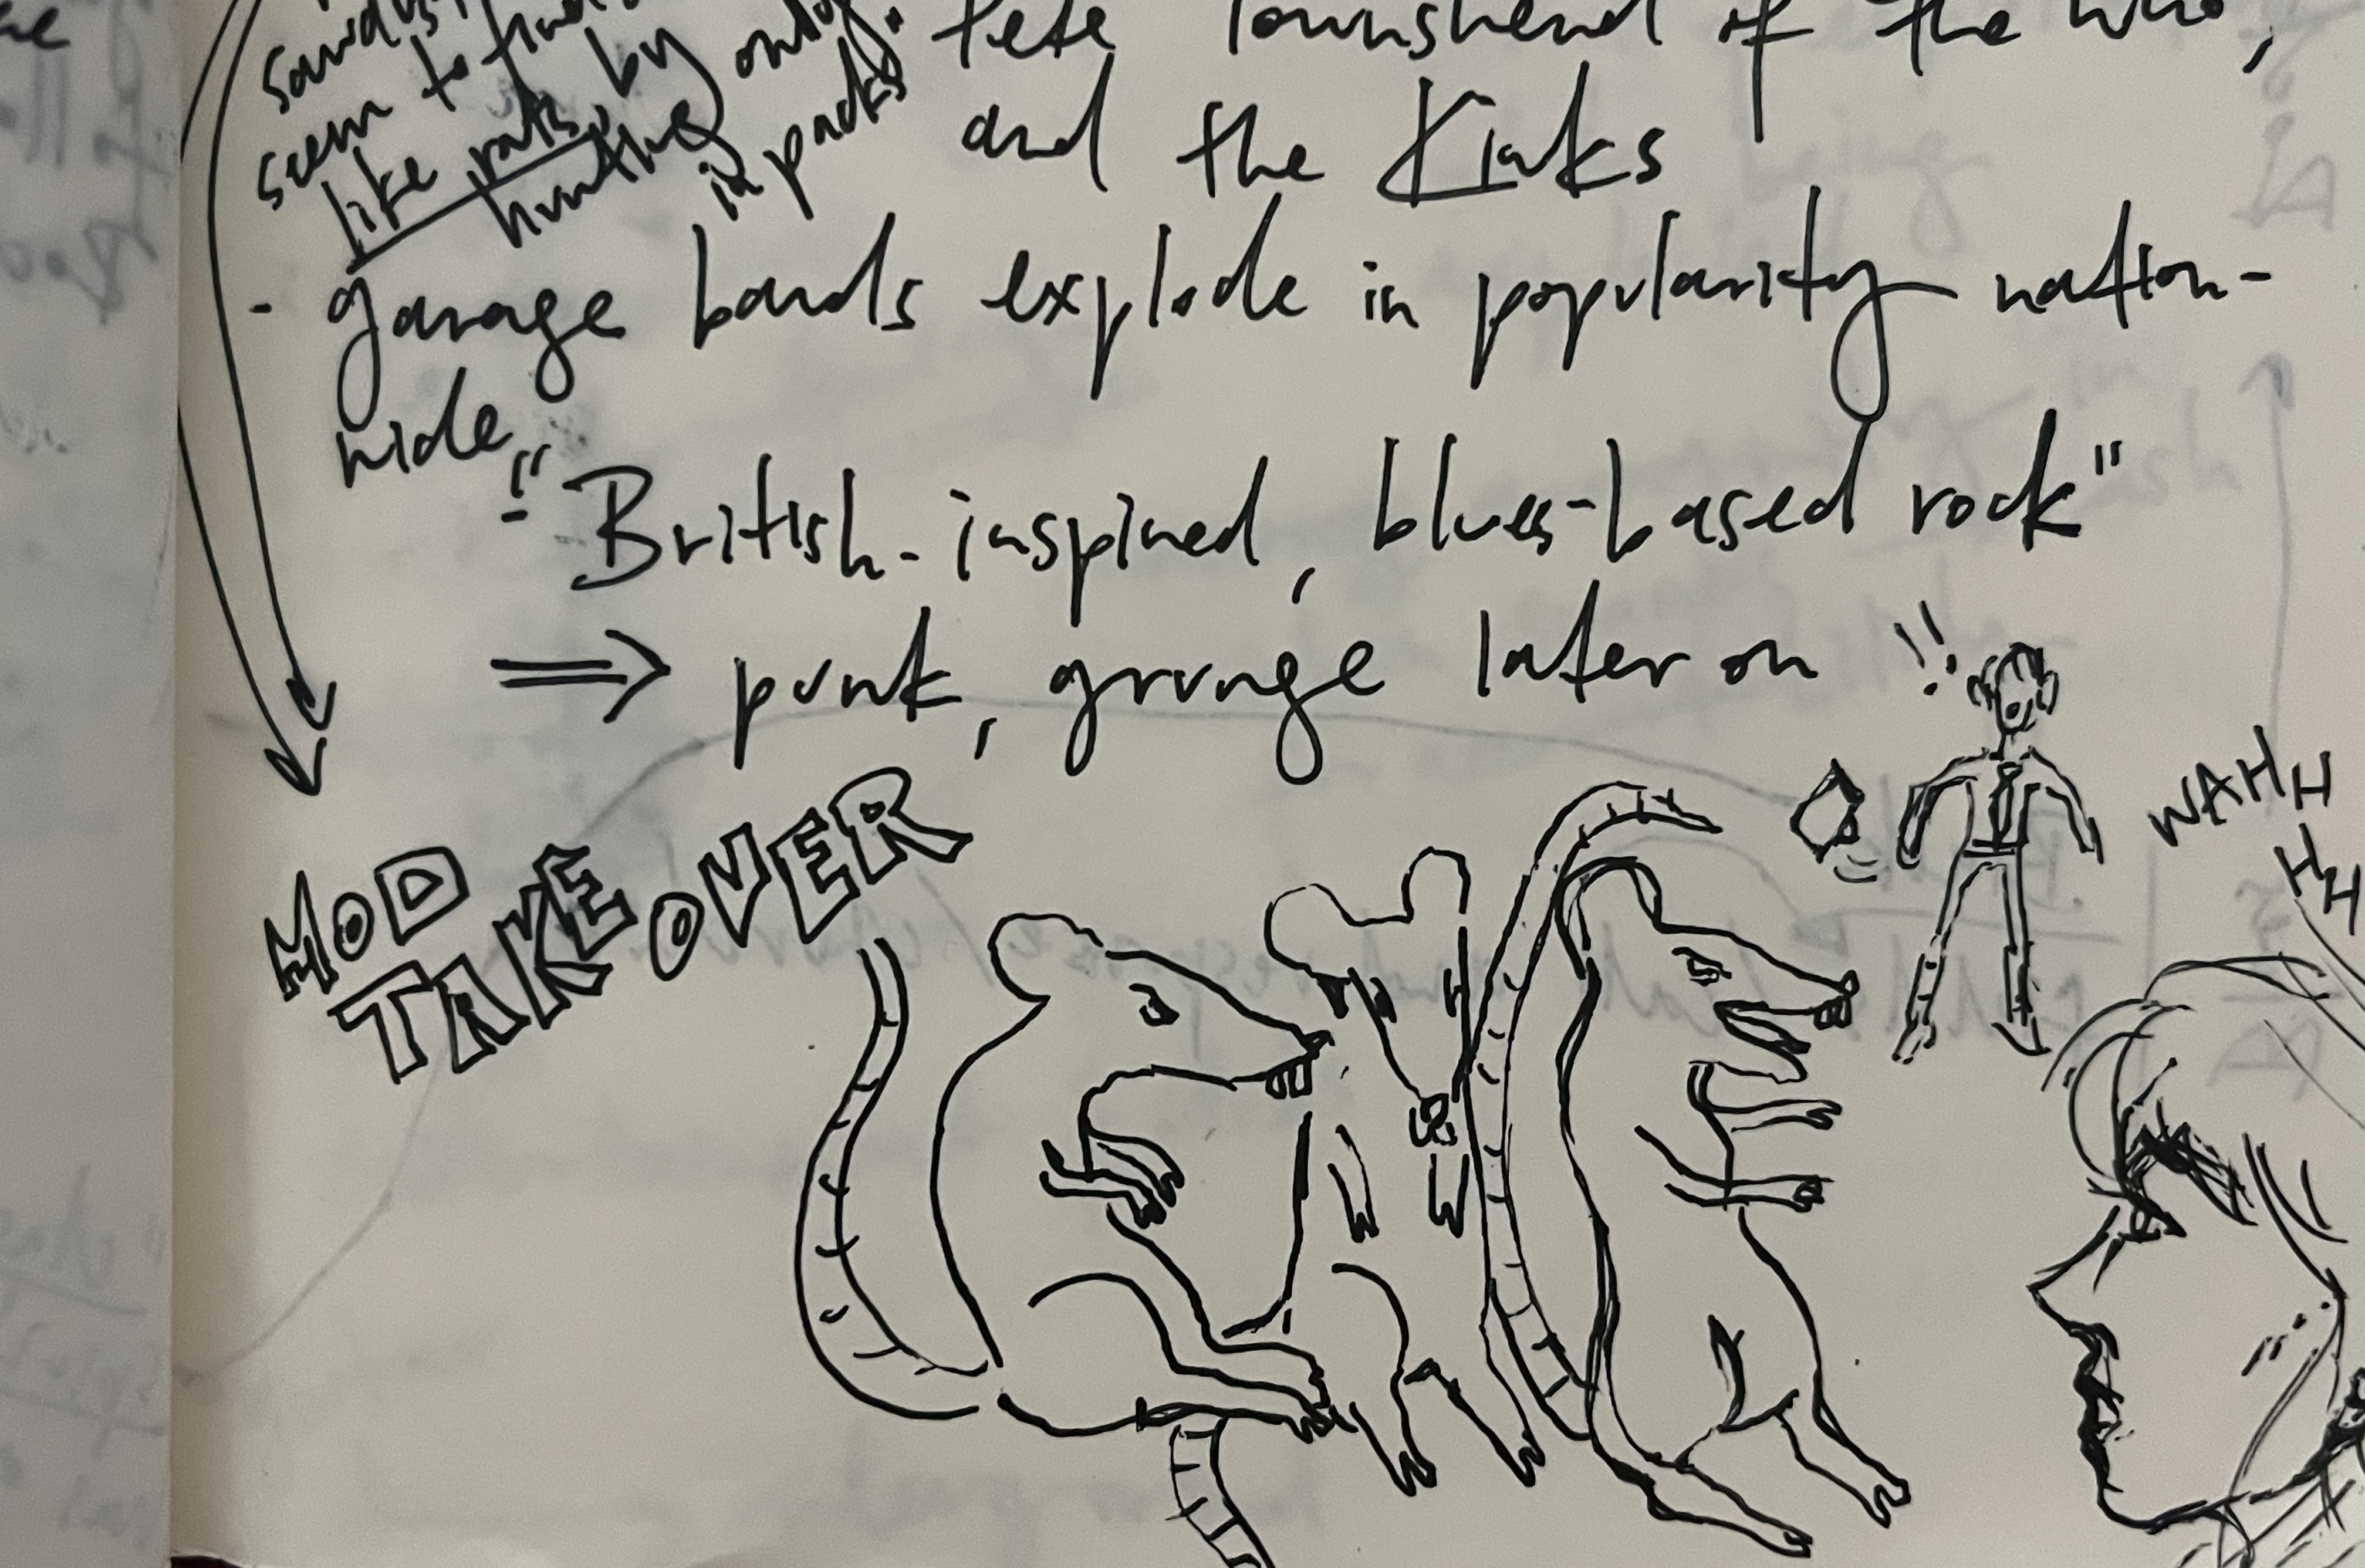 seem to
like rats, by only
hunting in packs.
Pete Townshend of the Who,
and the Kinks
- garage bands explode in popularity nation-
wide
- "British-inspired, blues-based rock"
⇒ punk, grunge later on !!
MOD
TAKEOVER
WAHH
HH